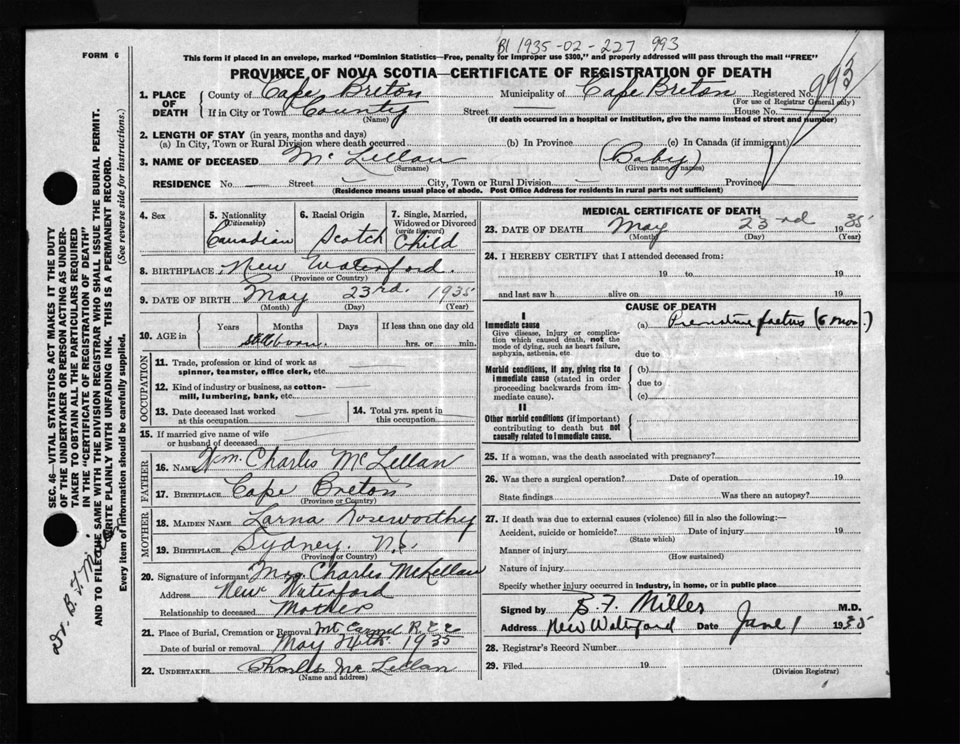 B1 1935-02-227 993
FORM 6
This form if placed in an envelope, marked "Dominion Statistics—Free, penalty for improper use $300," and properly addressed will pass through the mail "FREE"
PROVINCE OF NOVA SCOTIA—CERTIFICATE OF REGISTRATION OF DEATH
993
1. PLACE OF DEATH
County of Cape Breton Municipality of Cape Breton Registered No.
(For use of Registrar General only)
If in City or Town County Street House No.
(Name) (If death occurred in a hospital or institution, give the name instead of street and number)
2. LENGTH OF STAY (in years, months and days)
(a) In City, Town or Rural Division where death occurred (b) In Province (c) In Canada (if immigrant)
3. NAME OF DECEASED McLellan (Baby)
(Surname) (Given name or names)
RESIDENCE No. Street City, Town or Rural Division Province
(Residence means usual place of abode. Post Office Address for residents in rural parts not sufficient)
4. Sex
5. Nationality (Citizenship) Canadian
6. Racial Origin Scotch
7. Single, Married, Widowed or Divorced (write the word) Child
8. BIRTHPLACE New Waterford.
(Province or Country)
9. DATE OF BIRTH May 23rd. 1935
(Month) (Day) (Year)
10. AGE in Years Months Days If less than one day old
Stillborn. hrs. or min.
OCCUPATION
11. Trade, profession or kind of work as spinner, teamster, office clerk, etc.
12. Kind of industry or business, as cotton-mill, lumbering, bank, etc.
13. Date deceased last worked at this occupation
14. Total yrs. spent in this occupation
15. If married give name of wife or husband of deceased
FATHER
16. NAME Wm. Charles McLellan
17. BIRTHPLACE Cape Breton
(Province or Country)
MOTHER
18. MAIDEN NAME Lorna Noseworthy
19. BIRTHPLACE Sydney. N.S.
(Province or Country)
20. Signature of informant Mrs Charles McLellan
Address New Waterford
Relationship to deceased Mother
21. Place of Burial, Cremation or Removal Mt Carmel
Date of burial or removal May 1935
22. UNDERTAKER Charles McLellan
(Name and address)
MEDICAL CERTIFICATE OF DEATH
23. DATE OF DEATH May 23rd 1935
(Month) (Day) (Year)
24. I HEREBY CERTIFY that I attended deceased from:
19 to 19
and last saw h alive on 19
CAUSE OF DEATH
I
Immediate cause
Give disease, injury or complication which caused death, not the mode of dying, such as heart failure, asphyxia, asthenia, etc.
(a) Premature foetus (6 mos.)
due to
Morbid conditions, if any, giving rise to immediate cause (stated in order proceeding backwards from immediate cause).
(b)
due to
(c)
II
Other morbid conditions (if important) contributing to death but not causally related to immediate cause.
25. If a woman, was the death associated with pregnancy?
26. Was there a surgical operation? Date of operation 19
State findings Was there an autopsy?
27. If death was due to external causes (violence) fill in also the following:—
Accident, suicide or homicide? Date of injury 19
(State which)
Manner of injury
(How sustained)
Nature of injury
Specify whether injury occurred in industry, in home, or in public place
Signed by B. F. Miller M.D.
Address New Waterford Date June 1 1935
28. Registrar's Record Number
29. Filed 19
(Division Registrar)
SEC. 46—VITAL STATISTICS ACT MAKES IT THE DUTY
OF THE UNDERTAKER OR PERSON ACTING AS UNDER-
TAKER TO OBTAIN ALL THE PARTICULARS REQUIRED
IN THE "CERTIFICATE OF REGISTRATION OF DEATH"
AND TO FILE THE SAME WITH THE DIVISION REGISTRAR WHO SHALL ISSUE THE BURIAL PERMIT.
WRITE PLAINLY WITH UNFADING INK. THIS IS A PERMANENT RECORD.
Every item of information should be carefully supplied. (See reverse side for instructions.)